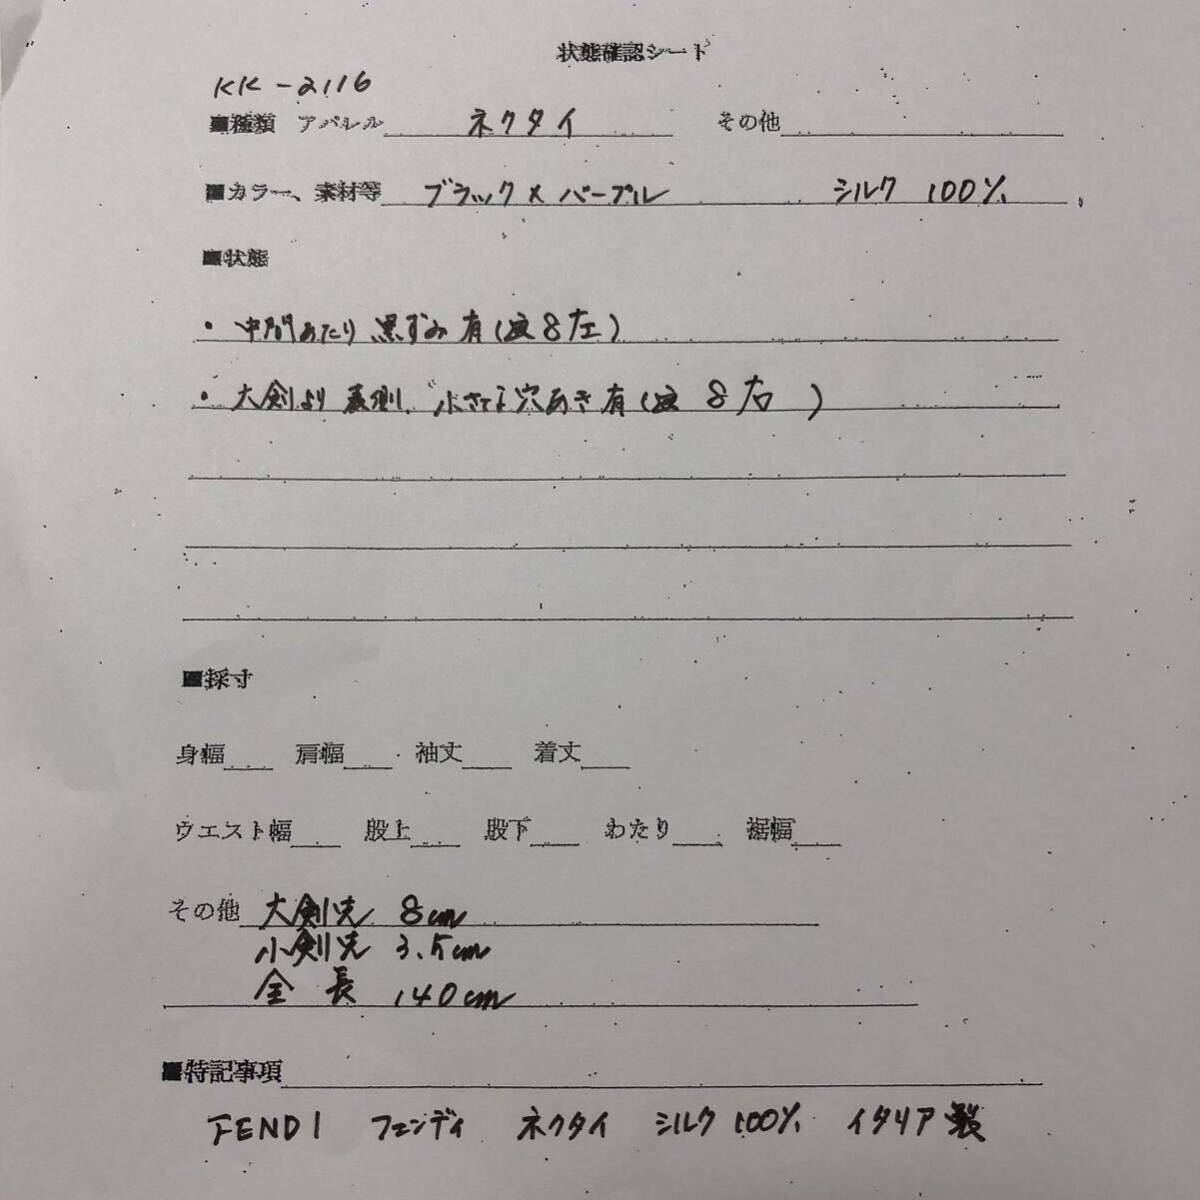 状態確認シート
KK-2116
■種類 アパレル ネクタイ その他
■カラー、素材等 ブラック×パープル シルク 100%
■状態
・中間あたり 黒ずみ有(画8左)
・大剣より裏側、小さな穴あき有(画8右)
■採寸
身幅 肩幅 袖丈 着丈
ウエスト幅 股上 股下 わたり 裾幅
その他 大剣先 8cm
小剣先 3.5cm
全長 140cm
■特記事項
FENDI フェンディ ネクタイ シルク100% イタリア製